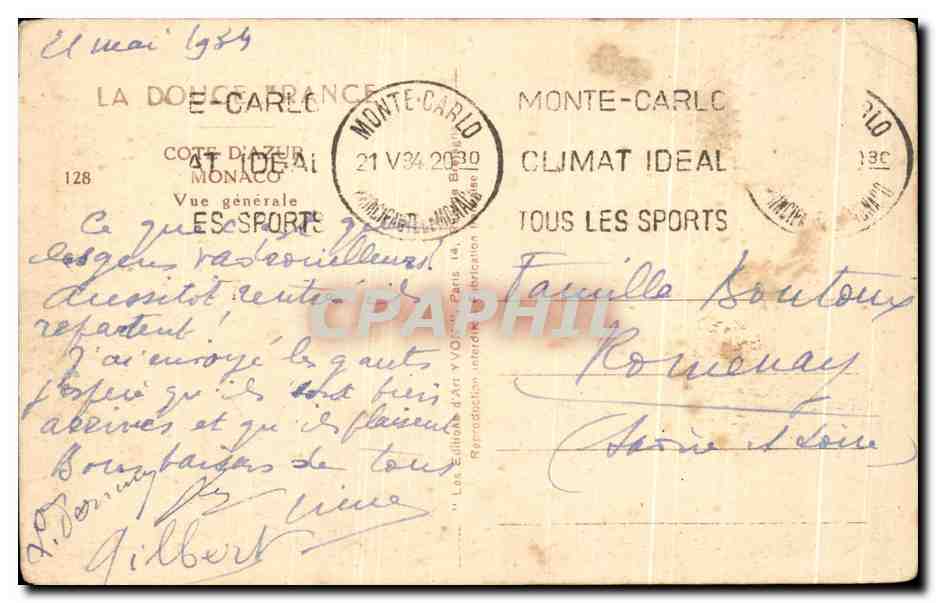 21 mai 1934
LA DOUCE FRANCE
E-CARLO
AT IDEAL
ES SPORTS
COTE D'AZUR
128 MONACO
Vue générale
MONTE-CARLO
21 V 34 20 30
PRINCIPAUTE DE MONACO
MONTE-CARLO
CLIMAT IDEAL
TOUS LES SPORTS
RLO
Ce que c'est que
les gens
aussitôt rentré ils
repartent!
J'ai envoyé les gants
j'espère qu'ils sont bien
arrivés et qu'ils plaisent
Bons baisers de tous
Gilbert
Famille Boutoux
Romenay
(Saône et Loire)
"Les Editions d'Art YVON", Paris, 14,
Reproduction interdite. Fabrication
CPAPHIL